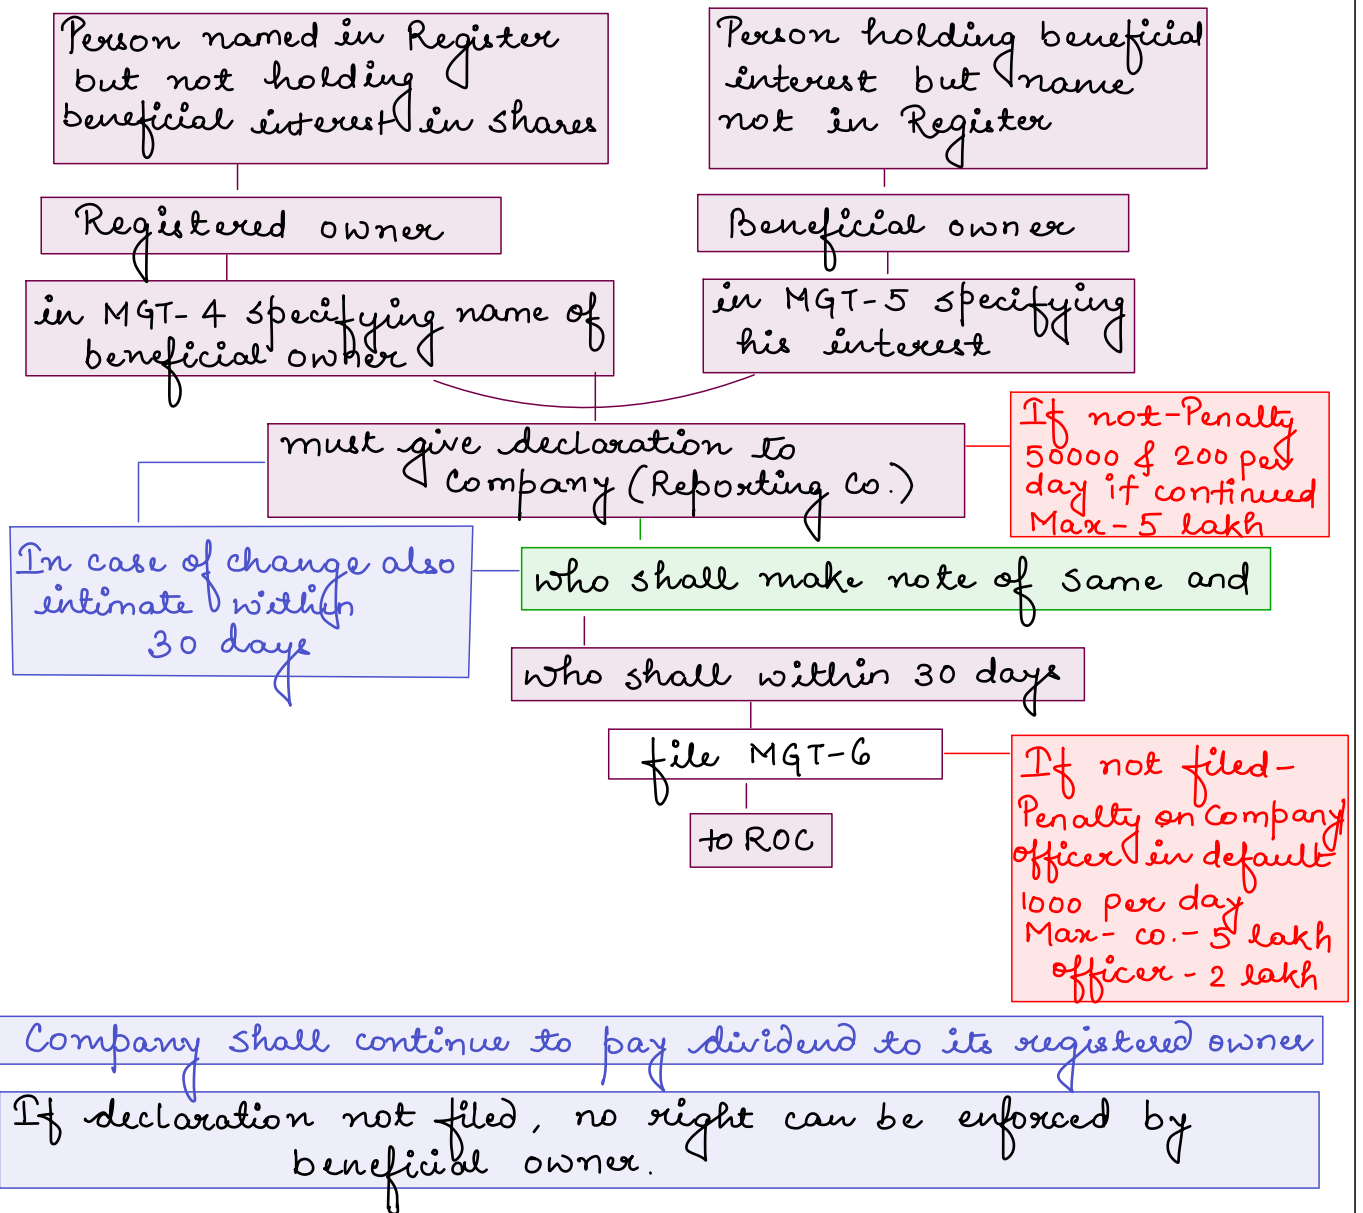 Person named in Register
but not holding
beneficial interest in shares
Person holding beneficial
interest but name
not in Register
Registered owner
Beneficial owner
in MGT-4 specifying name of
beneficial owner
in MGT-5 specifying
his interest
must give declaration to
Company (Reporting Co.)
If not-Penalty
50000 & 200 per
day if continued
Max-5 lakh
In case of change also
intimate within
30 days
who shall make note of same and
who shall within 30 days
file MGT-6
to ROC
If not filed-
Penalty on Company
officer in default
1000 per day
Max- co.-5 lakh
officer-2 lakh
Company shall continue to pay dividend to its registered owner
If declaration not filed, no right can be enforced by
beneficial owner.